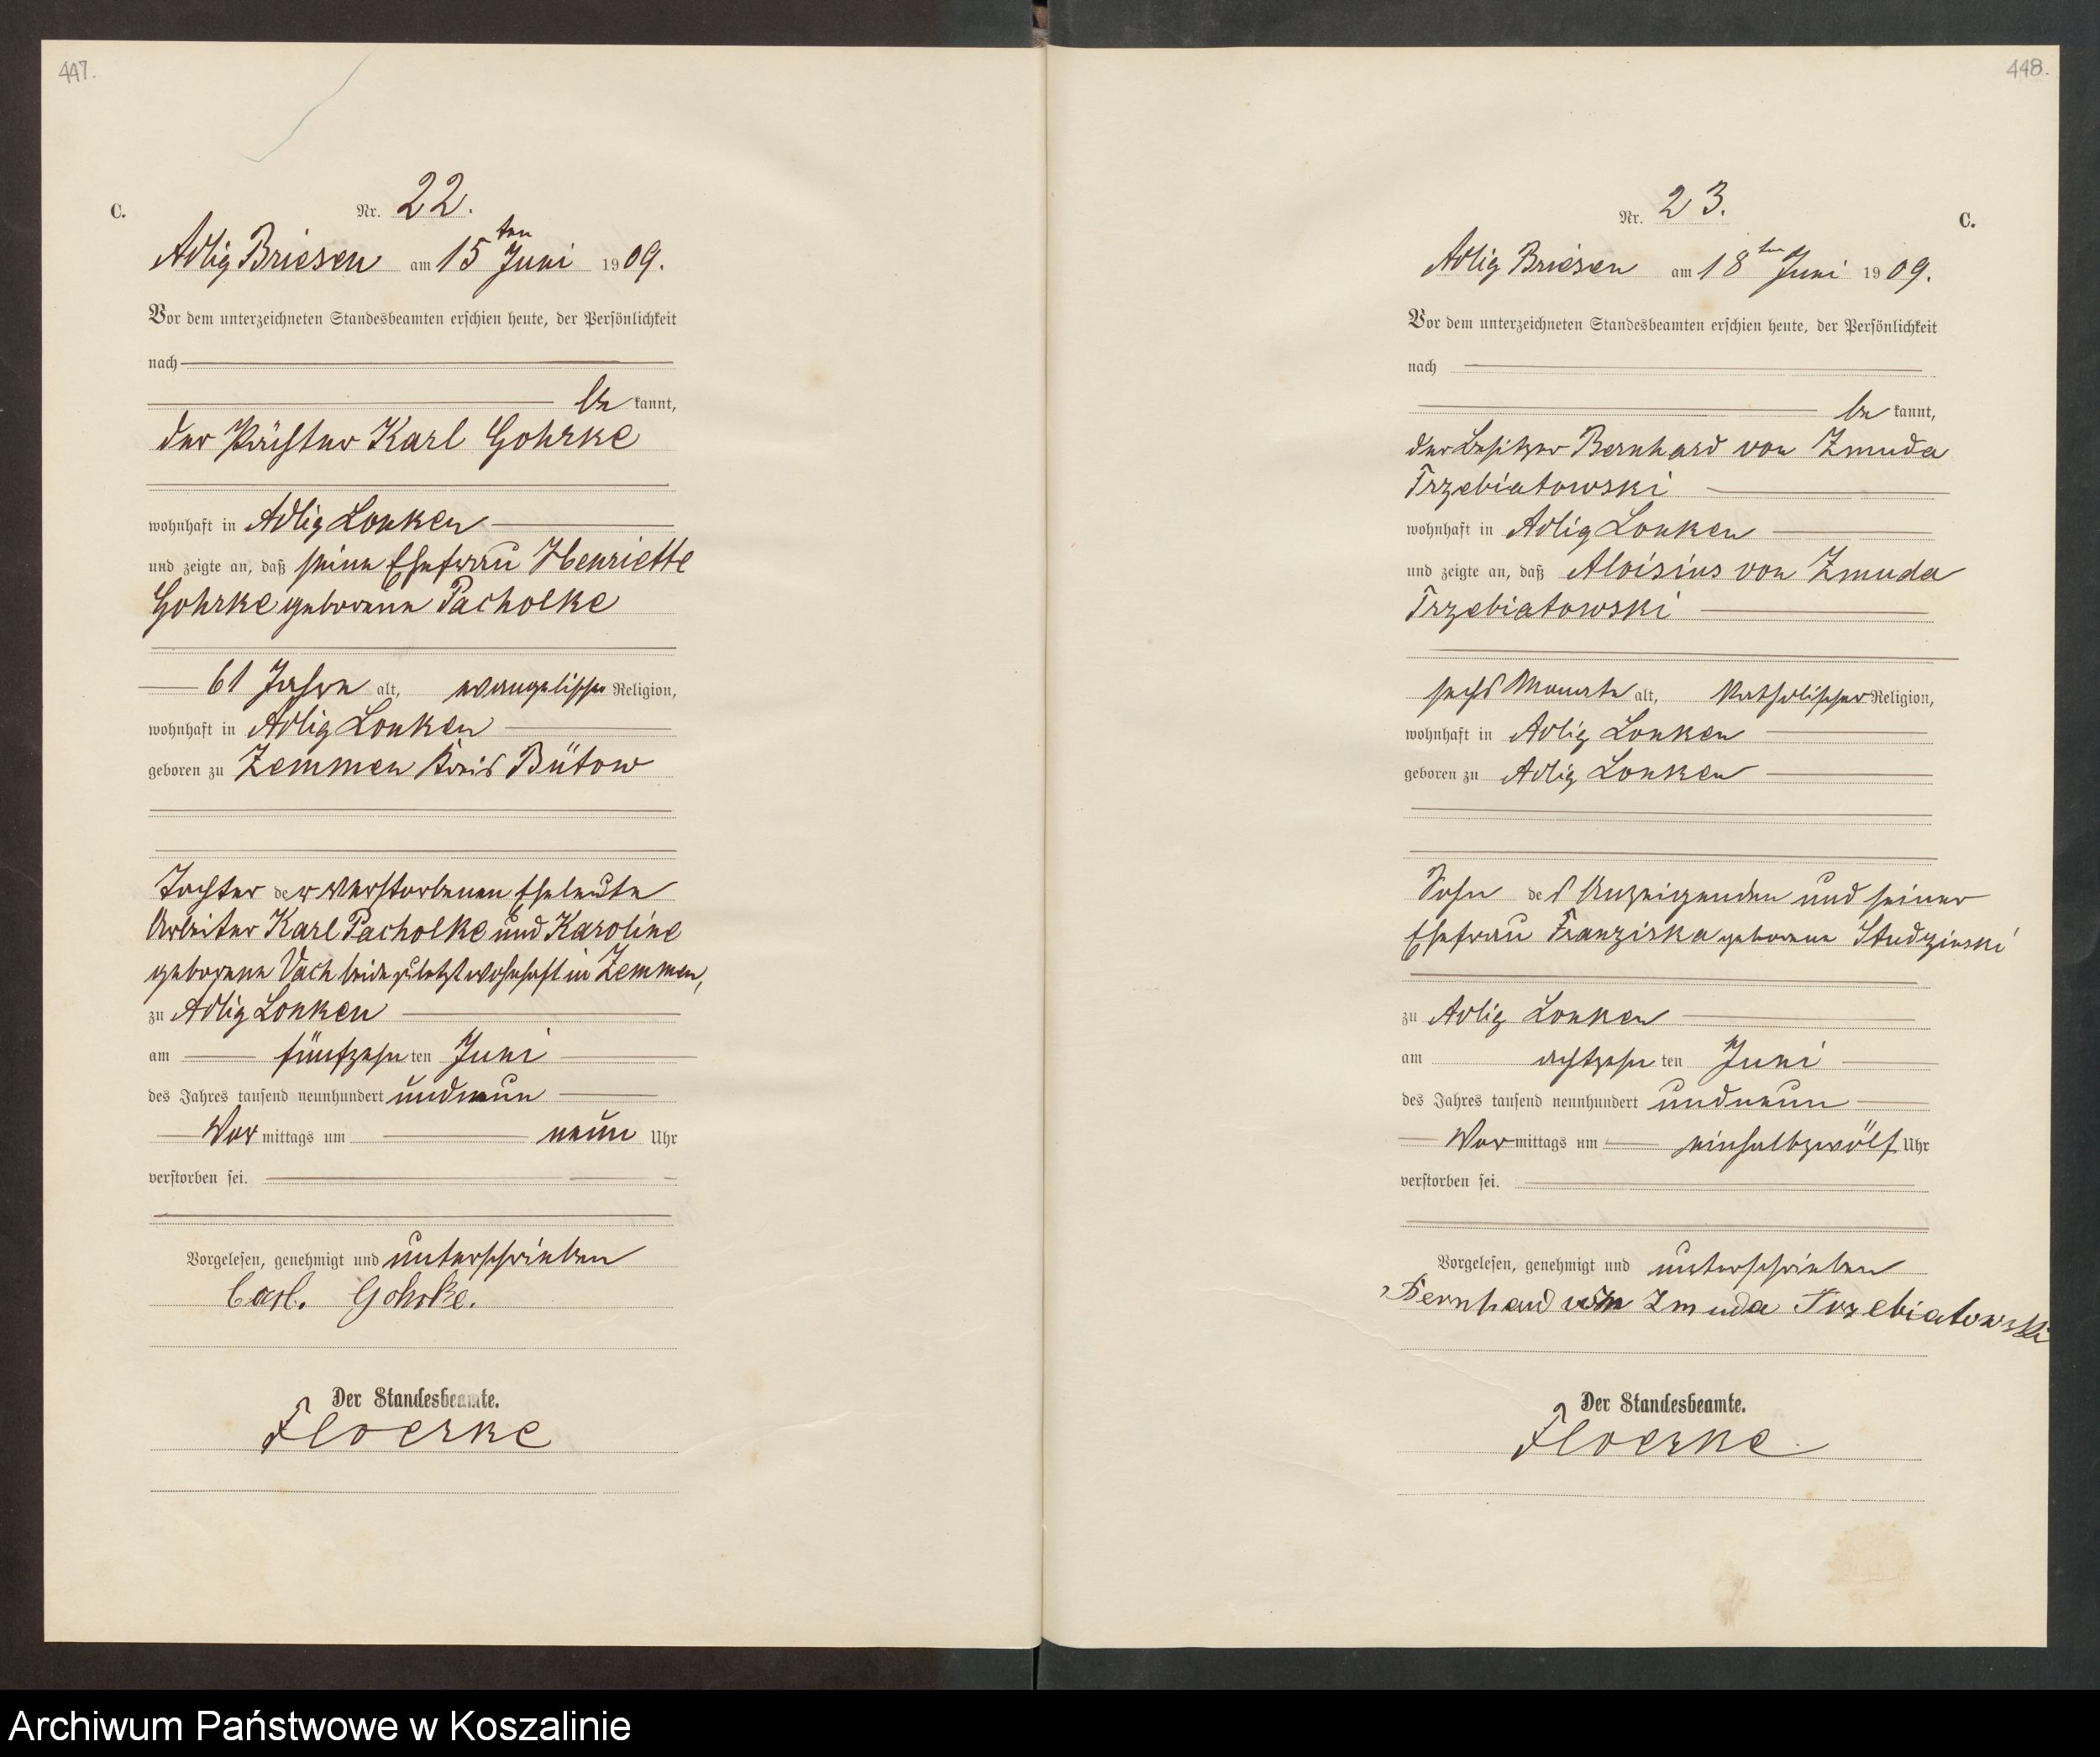 447.
C.
Nr. 22.
Adlig Briesen am 15ten Juni 1909.
Vor dem unterzeichneten Standesbeamten erschien heute, der Persönlichkeit
nach
be kannt,
der Pächter Karl Gohrke
wohnhaft in Adlig Lonken
und zeigte an, daß seine Ehefrau Henriette
Gohrke geborene Pacholke
61 Jahre alt, evangelischer Religion,
wohnhaft in Adlig Lonken
geboren zu Zemmen Kreis Bütow
Tochter der verstorbenen Eheleute
Arbeiter Karl Pacholke und Karoline
geborene Vach beide zuletzt wohnhaft in Zemmen,
zu Adlig Lonken
am fünfzehn ten Juni
des Jahres tausend neunhundert undneun
Vor mittags um neun Uhr
verstorben sei.
Vorgelesen, genehmigt und unterschrieben
Carl. Gohrke.
Der Standesbeamte.
Floerke
448.
C.
Nr. 23.
Adlig Briesen am 18ten Juni 1909.
Vor dem unterzeichneten Standesbeamten erschien heute, der Persönlichkeit
nach
be kannt,
der Besitzer Bernhard von Zmuda
Trzebiatowski
wohnhaft in Adlig Lonken
und zeigte an, daß Aloisius von Zmuda
Trzebiatowski
sechs Monate alt, katholischer Religion,
wohnhaft in Adlig Lonken
geboren zu Adlig Lonken
Sohn des Anzeigenden und seiner
Ehefrau Franziska geborene Studzinski
zu Adlig Lonken
am achtzehn ten Juni
des Jahres tausend neunhundert undneun
Vor mittags um einhalbzwölf Uhr
verstorben sei.
Vorgelesen, genehmigt und unterschrieben
Bernhard von Zmuda Trzebiatowski
Der Standesbeamte.
Floerke.
Archiwum Państwowe w Koszalinie